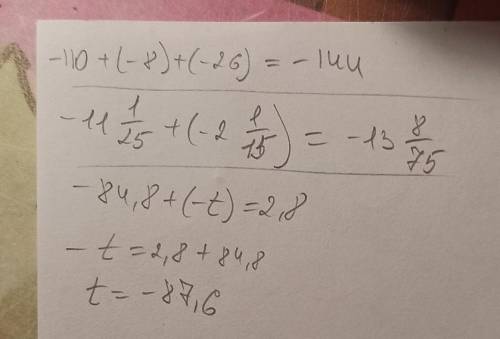 -110 + (-8) + (-26) = -144
-11 1/25 + (-2 1/15) = -13 8/75
-84,8 + (-t) = 2,8
-t = 2,8 + 84,8
t = -87,6